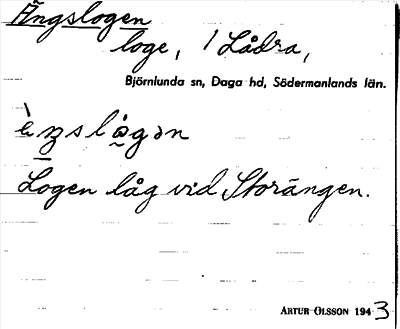 Ängslogen
loge, / Lådra,
Björnlunda sn, Daga hd, Södermanlands län.
Logen låg vid Storängen.
ARTUR OLSSON 1943